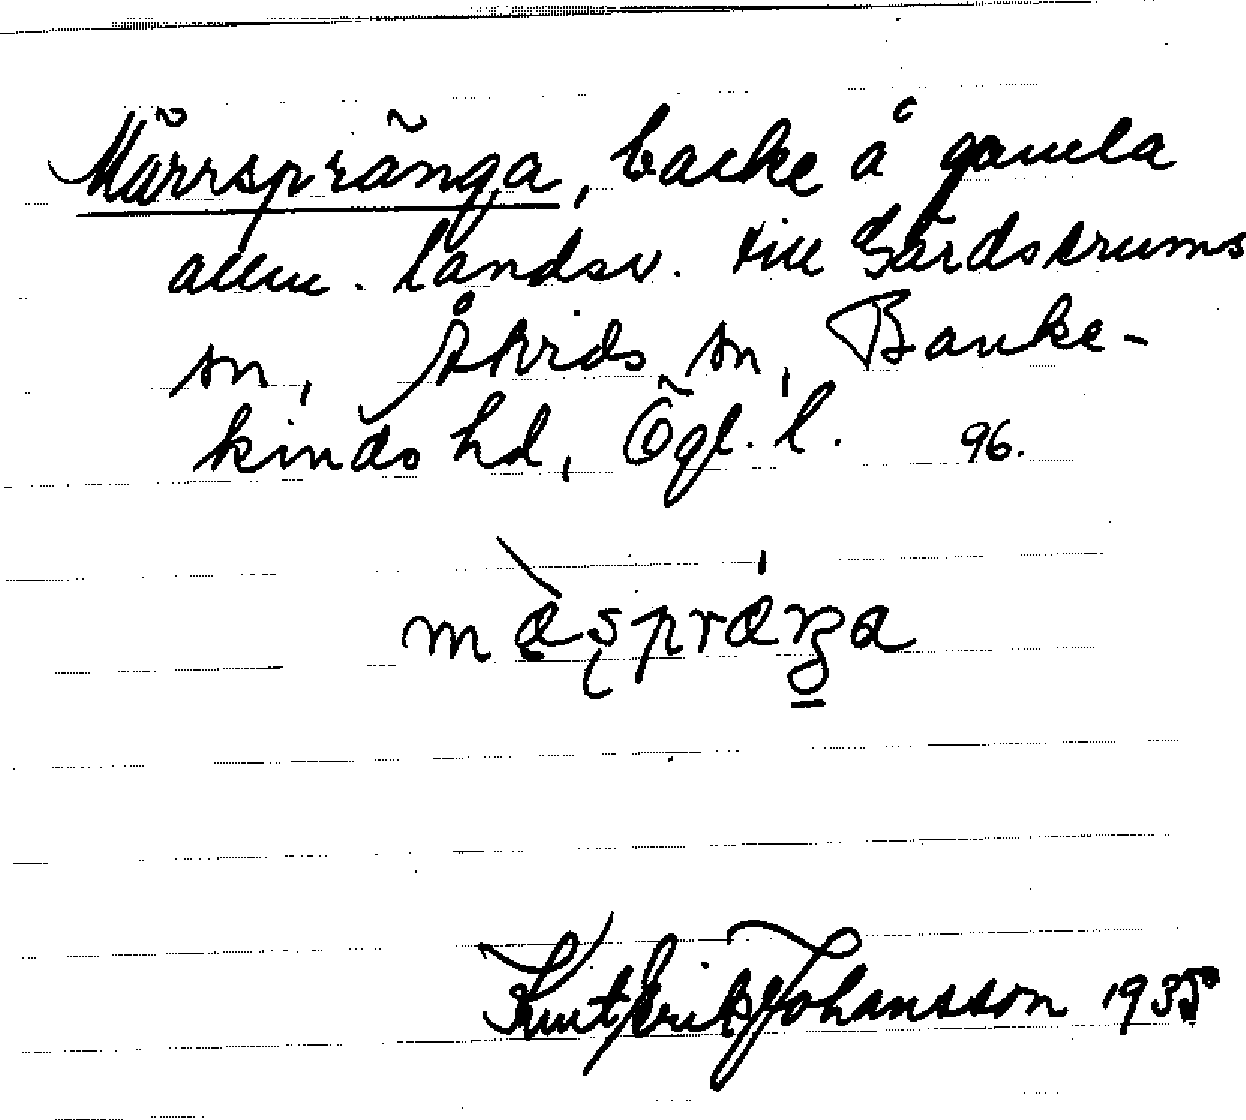 Märrspränga, backe å gamla
allm. landsv. till Gärdserums
sn, Åtvids sn, Banke-
kinds hd, Ögl. l. 96.
Knut Erik Johansson 1935